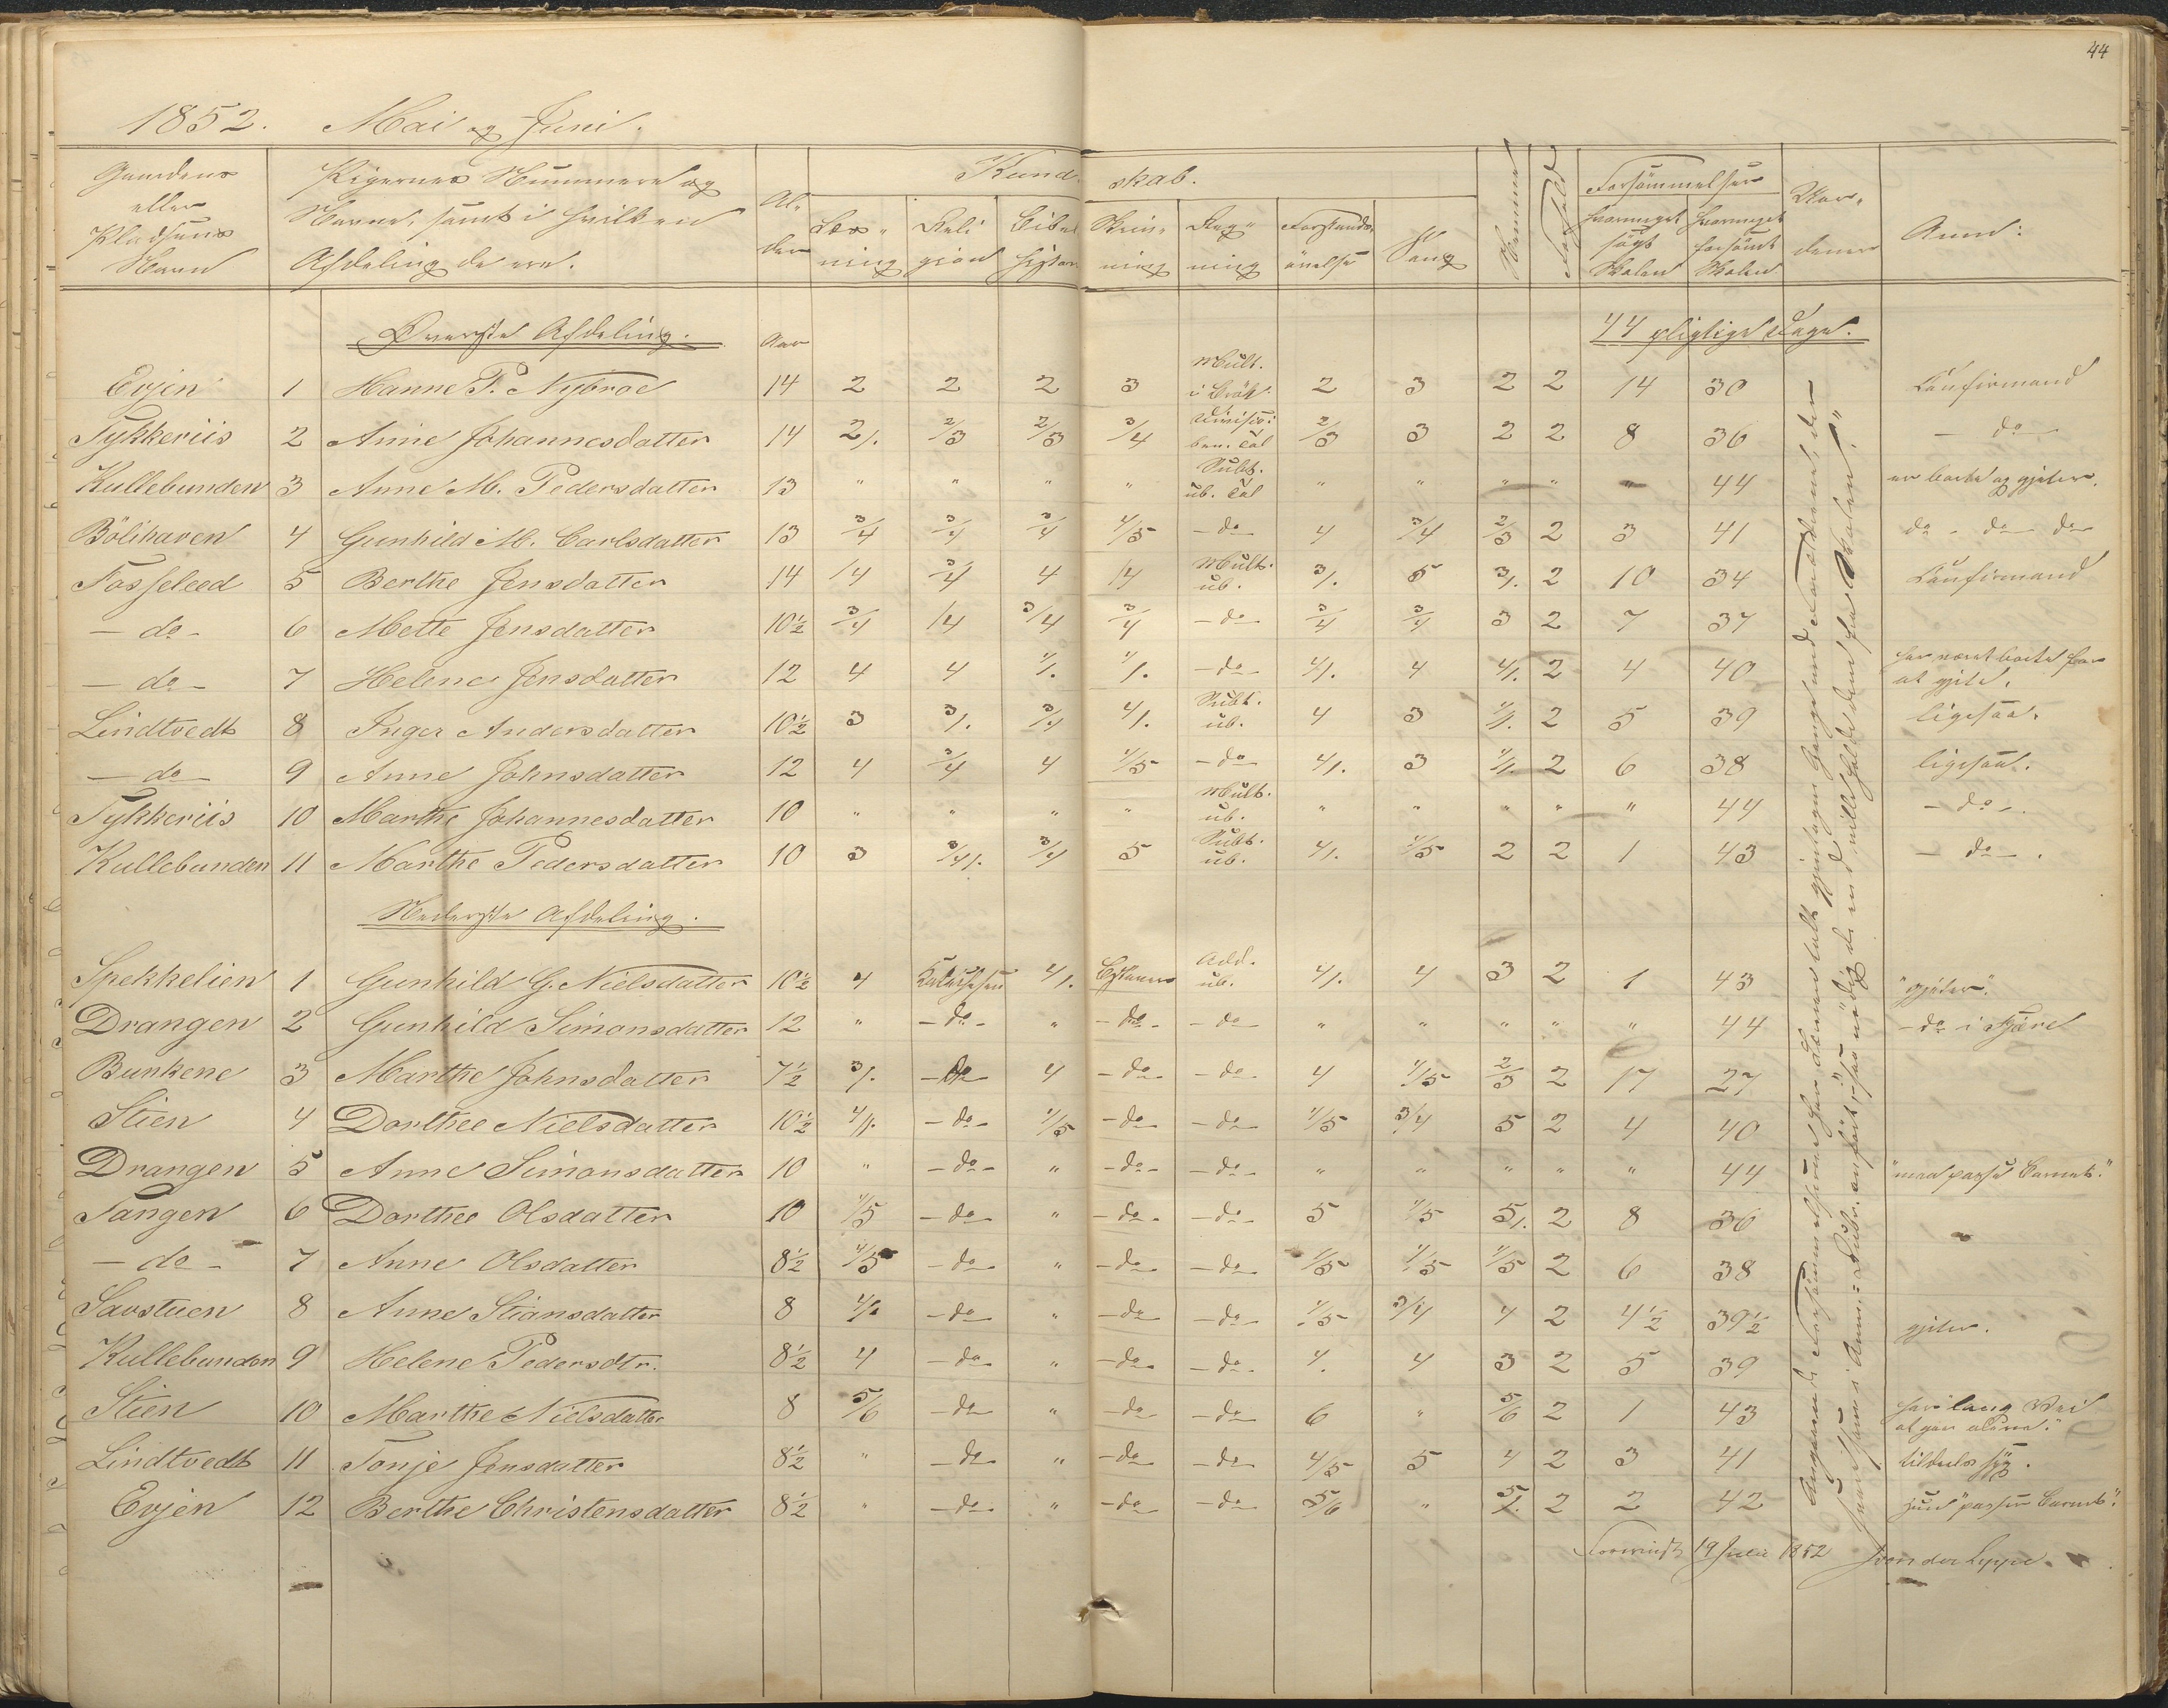 44
1852. Mai og Juni.
Gaardens eller Pladsens Navn | Pigernes Nummere og Navne, samt i hvilken Afdeling de ere. | Alder | Kundskab. | Læsning | Religion | Bibelhistorie | Skrivning | Regning | Forstandsøvelse | Sang | Nemme | Forhold | Forsømmelser | hvormeget søgt Skolen | hvormeget forsømt Skolen | Anm:
Øverste Afdeling. Aar 44 pligtige Dage.
Evjen 1 Hanne P. Nybroe 14 2 2 2 3 Mult. i Brøk. 2 3 2 2 14 30 Confirmand
Tykkeriis 2 Anne Johannesdatter 14 2/. 2/3 2/3 3/4 Divisio: ben. Tal 2/3 3 2 2 8 36 – do –
Kullebunden 3 Anne M. Pedersdatter 13 " " " " Subt. ub. Tal " " " " " 44 er borte og gjeter.
Bölihaven 4 Gunhild M. Carlsdatter 13 3/4 3/4 3/4 4/5 – do – 4 3/4 2/3 2 3 41 do – do – do
Fosseleed 5 Berthe Jensdatter 14 /4 3/4 4 /4 Mult. ub. 3/. 5 3/. 2 10 34 Confirmand
– do – 6 Mette Jensdatter 10½ 3/4 /4 3/4 3/4 – do – 3/4 3/4 3 2 7 37
– do – 7 Helene Jensdatter 12 4 4 4/. 4/. – do – 4/. 4 4/. 2 4 40 har været borte for at gjete.
Lindtvedt 8 Inger Andersdatter 10½ 3 3/. 3/4 4/. Subt. ub. 4 3 4/. 2 5 39 ligesaa.
– do – 9 Anne Johnsdatter 12 4 3/4 4 4/5 – do – 4/. 3 4/. 2 6 38 ligesaa.
Tykkeriis 10 Marthe Johannesdatter 10 " " " " Mult. ub. " " " " " 44 – do –.
Kullebunden 11 Marthe Pedersdatter 10 3 3/4/. 3/4 5 Subt. ub. 4/. 4/5 2 2 1 43 – do –.
Nederste Afdeling.
Spekkelien 1 Gunhild G. Nielsdatter 10½ 4 4/. Add. ub. 4/. 4 3 2 1 43 "gjeter".
Drangen 2 Gunhild Simonsdatter 12 " – do – " – do – – do – " " " " " 44 – do i Fjære
Bunkene 3 Marthe Johnsdatter 7½ 3/. – do 4 – do – – do – 4 4/5 2/3 2 17 27
Stien 4 Dorthee Nielsdatter 10½ 4/. – do – 4/5 – do – – do – 4/5 3/4 5 2 4 40
Drangen 5 Anne Simonsdatter 10 " – do – " – do – – do – " " " " " 44 "maa passe Barnet."
Tangen 6 Dorthee Olsdatter 10 4/5 – do – " – do – – do – 5 4/5 5/. 2 8 36
– do – 7 Anne Olsdatter 8½ 4/5 – do – " – do – – do – 4/5 4/5 4/5 2 6 38
Savstuen 8 Anne Stiansdatter 8 4/. – do – " – do – – do – 4/5 3/4 4 2 4½ 39½ gjeter.
Kullebunden 9 Helene Pedersdtr. 8½ 4 – do – " – do – – do – 4. 4 3 2 5 39
Stien 10 Marthe Nielsdatter 8 5/6 – do – " – do – – do – 6 " 5/6 2 1 43 har lang Vei at gaa alene."
Lindtvedt 11 Tonje Jensdatter 8½ " – do – " – do – – do – 4/5 5 4 2 3 41 tildeels syg.
Evjen 12 Berthe Christensdatter 8½ " – do – " – do – – do – 5/6 " 5/. 2 2 42 "passer Barnet".
Angaaende Forsømmelserne har
Foreviist 19 Juli 1852 von der Lippe.